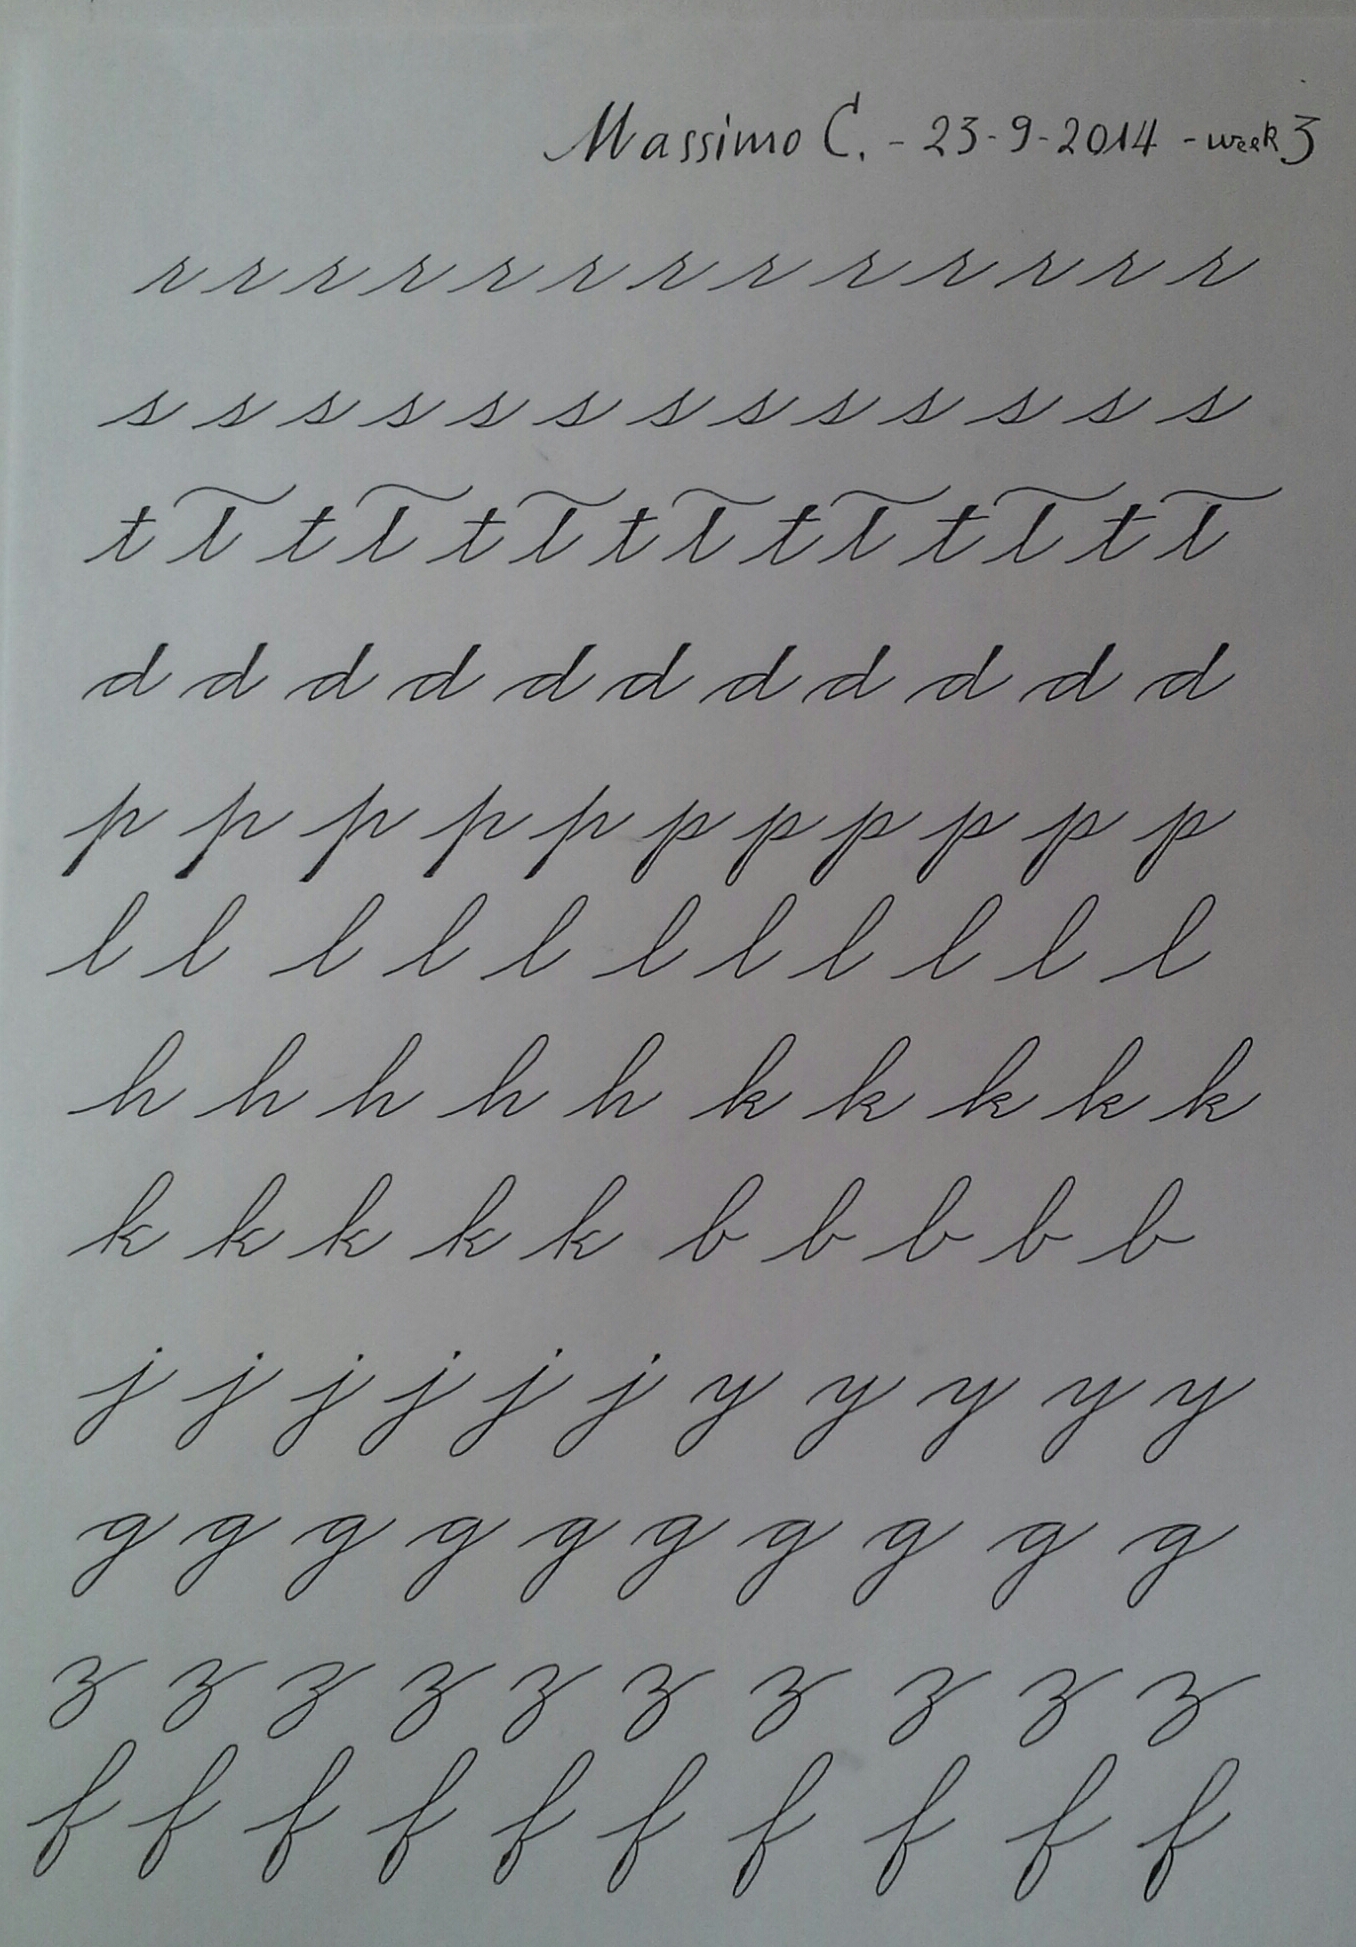 Massimo C. - 23-9-2014 - week 3
r r r r r r r r r r r r r
s s s s s s s s s s s s s
t t t t t t t t t t t t t t
d d d d d d d d d d d
p p p p p p p p p p p
l l l l l l l l l l l
h h h h h k k k k k
k k k k k b b b b b
j j j j j j y y y y y
g g g g g g g g g g
z z z z z z z z z z
f f f f f f f f f f